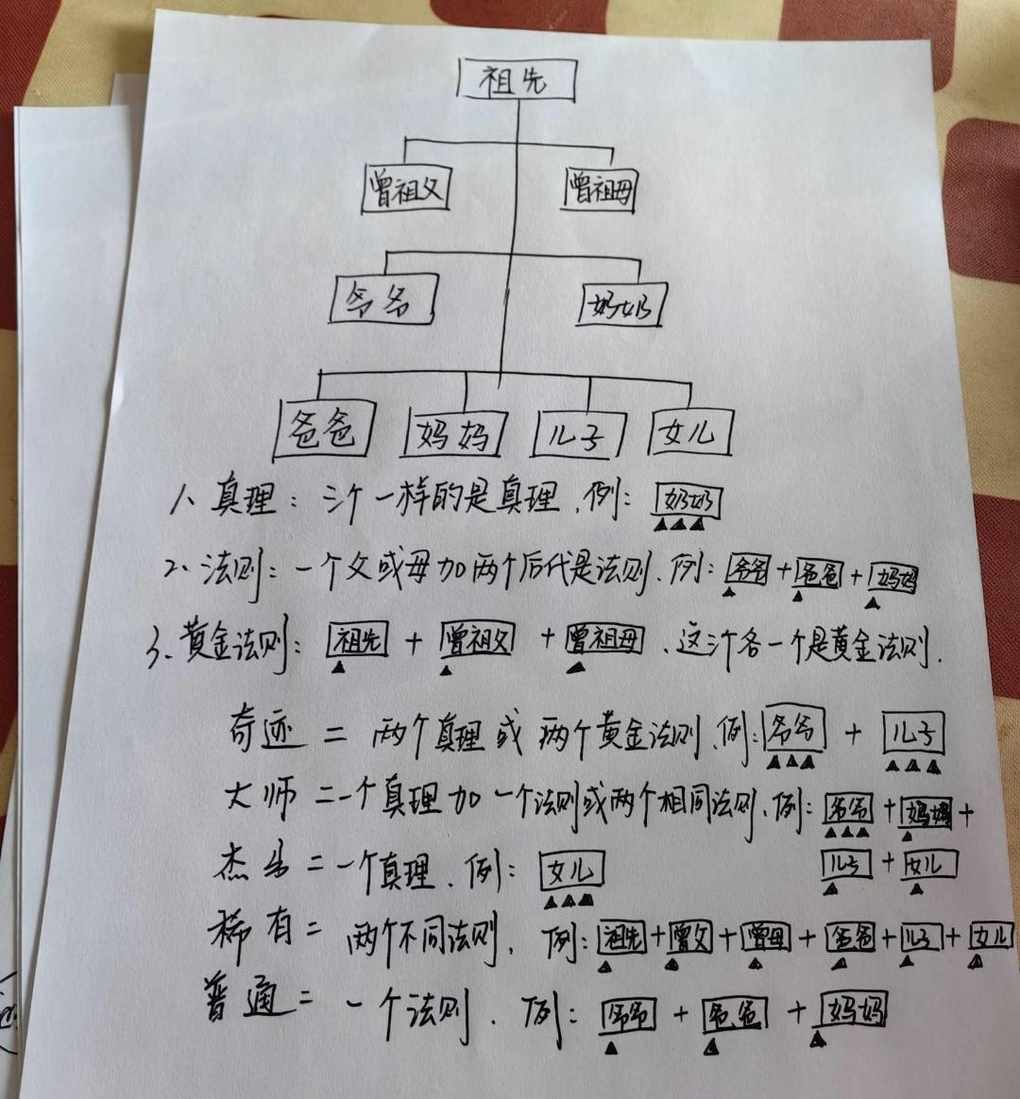 祖先
曾祖父 曾祖母
爷爷 奶奶
爸爸 妈妈 儿子 女儿
1、真理：三个一样的是真理、例：奶奶
▲▲▲
2、法则：一个父或母加两个后代是法则、例：爷爷+爸爸+妈妈
▲ ▲ ▲
3、黄金法则：祖先 + 曾祖父 + 曾祖母、这三个各一个是黄金法则.
▲ ▲ ▲
奇迹 = 两个真理或两个黄金法则、例：爷爷 + 儿子
▲▲▲ ▲▲▲
大师 = 一个真理加一个法则或两个相同法则、例：爷爷+妈妈+
▲▲▲ ▲
儿子+女儿
▲ ▲
杰出 = 一个真理、例：女儿
▲▲▲
稀有 = 两个不同法则, 例：祖先+曾父+曾母+爸爸+儿子+女儿
▲ ▲ ▲ ▲ ▲ ▲
普通 = 一个法则、例：爷爷 + 爸爸 + 妈妈
▲ ▲ ▲